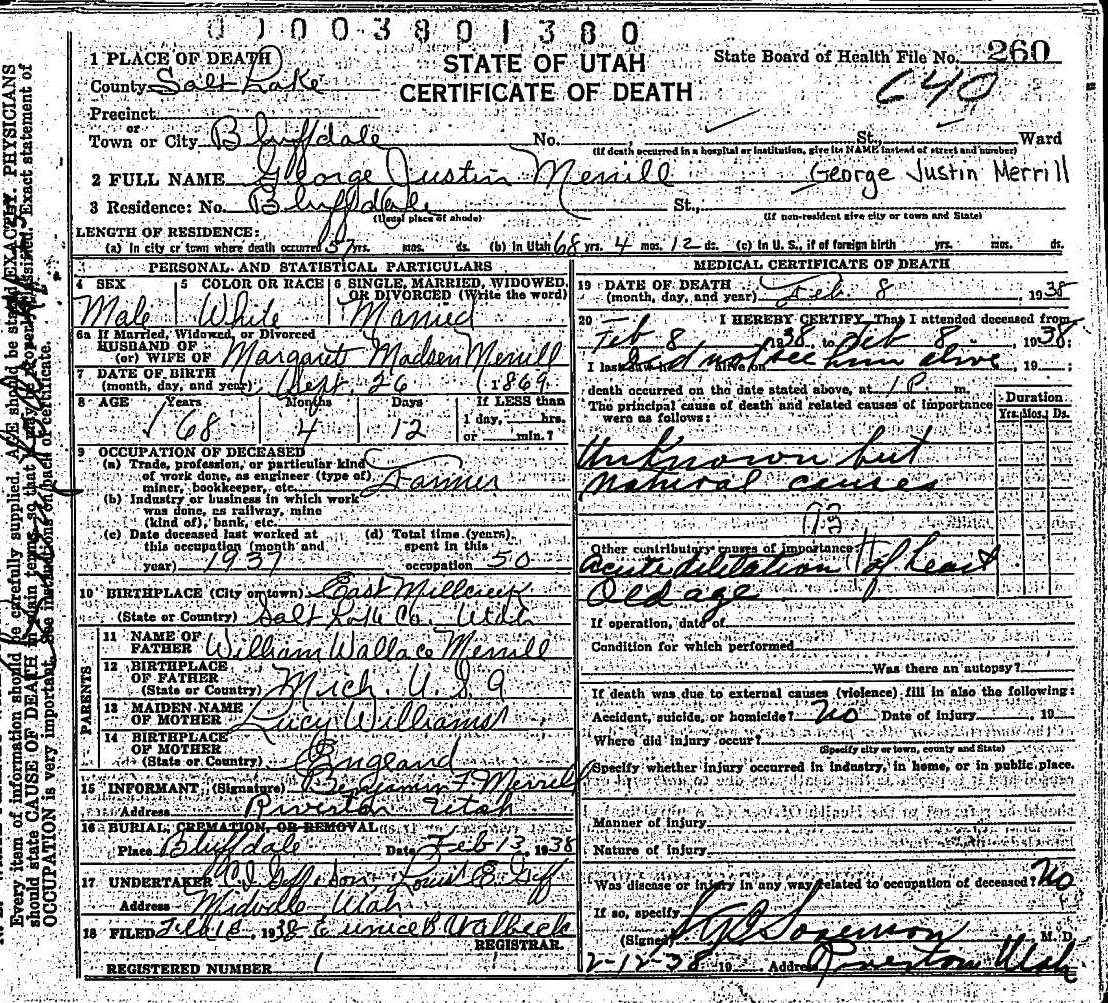 01003801380
1 PLACE OF DEATH
STATE OF UTAH
State Board of Health File No. 260
County Salt Lake
CERTIFICATE OF DEATH
C40
Precinct
or
Town or City Bluffdale No. St., Ward
(If death occurred in a hospital or institution, give its NAME instead of street and number)
2 FULL NAME George Justin Merrill George Justin Merrill
3 Residence: No. Bluffdale St.,
(Usual place of abode) (If non-resident give city or town and State)
LENGTH OF RESIDENCE:
(a) In city or town where death occurred 57 yrs. mos. ds. (b) In Utah 68 yrs. 4 mos. 12 ds. (c) In U. S., if of foreign birth yrs. mos. ds.
PERSONAL AND STATISTICAL PARTICULARS
4 SEX 5 COLOR OR RACE 6 SINGLE, MARRIED, WIDOWED, OR DIVORCED (Write the word)
Male White Married
6a If Married, Widowed, or Divorced
HUSBAND OF
(or) WIFE OF Margaret Madsen Merrill
7 DATE OF BIRTH
(month, day, and year) Sept. 26 1869
8 AGE Years Months Days If LESS than
68 4 12 1 day, hrs.
or min.?
9 OCCUPATION OF DECEASED
(a) Trade, profession, or particular kind
of work done, as engineer (type of)
miner, bookkeeper, etc. Farmer
(b) Industry or business in which work
was done, as railway, mine
(kind of), bank, etc.
(c) Date deceased last worked at (d) Total time (years)
this occupation (month and spent in this
year) 1937 occupation 50
10 BIRTHPLACE (City or town) East Millcreek
(State or Country) Salt Lake Co. Utah
PARENTS
11 NAME OF
FATHER William Wallace Merrill
12 BIRTHPLACE
OF FATHER
(State or Country) Mich. U.S.A
13 MAIDEN NAME
OF MOTHER Lucy Williams
14 BIRTHPLACE
OF MOTHER
(State or Country) England
15 INFORMANT (Signature) Benjamin F Merrill
Address Riverton Utah
16 BURIAL, CREMATION, OR REMOVAL
Place Bluffdale Date Feb 13, 1938
17 UNDERTAKER Son
Address Midvale Utah
18 FILED Feb 18, 1938 Eunice B Walbeck
REGISTRAR.
REGISTERED NUMBER 1
MEDICAL CERTIFICATE OF DEATH
19 DATE OF DEATH
(month, day, and year) Feb. 8 1938
20 I HEREBY CERTIFY, That I attended deceased from
Feb 8 1938, to Feb 8, 1938:
I last saw h alive on did not see him alive, 19 ;
death occurred on the date stated above, at 1 P m.
The principal cause of death and related causes of importance
were as follows:
Duration
Yrs. Mos. Ds.
Unknown but
natural causes
Other contributory causes of importance:
Acute dilitation of heart
Old age
If operation, date of
Condition for which performed
Was there an autopsy?
If death was due to external causes (violence) fill in also the following:
Accident, suicide, or homicide? No Date of injury , 19
Where did injury occur?
(Specify city or town, county and State)
Specify whether injury occurred in industry, in home, or in public place.
Manner of injury
Nature of injury
Was disease or injury in any way related to occupation of deceased? No
If so, specify
(Signed) Sorenson M. D.
2-12-38 19 Address Riverton Utah
Every item of information should be carefully supplied. AGE should be stated EXACTLY. PHYSICIANS
should state CAUSE OF DEATH in plain terms, so that it may be properly classified. Exact statement of
OCCUPATION is very important. See instructions on back of certificate.